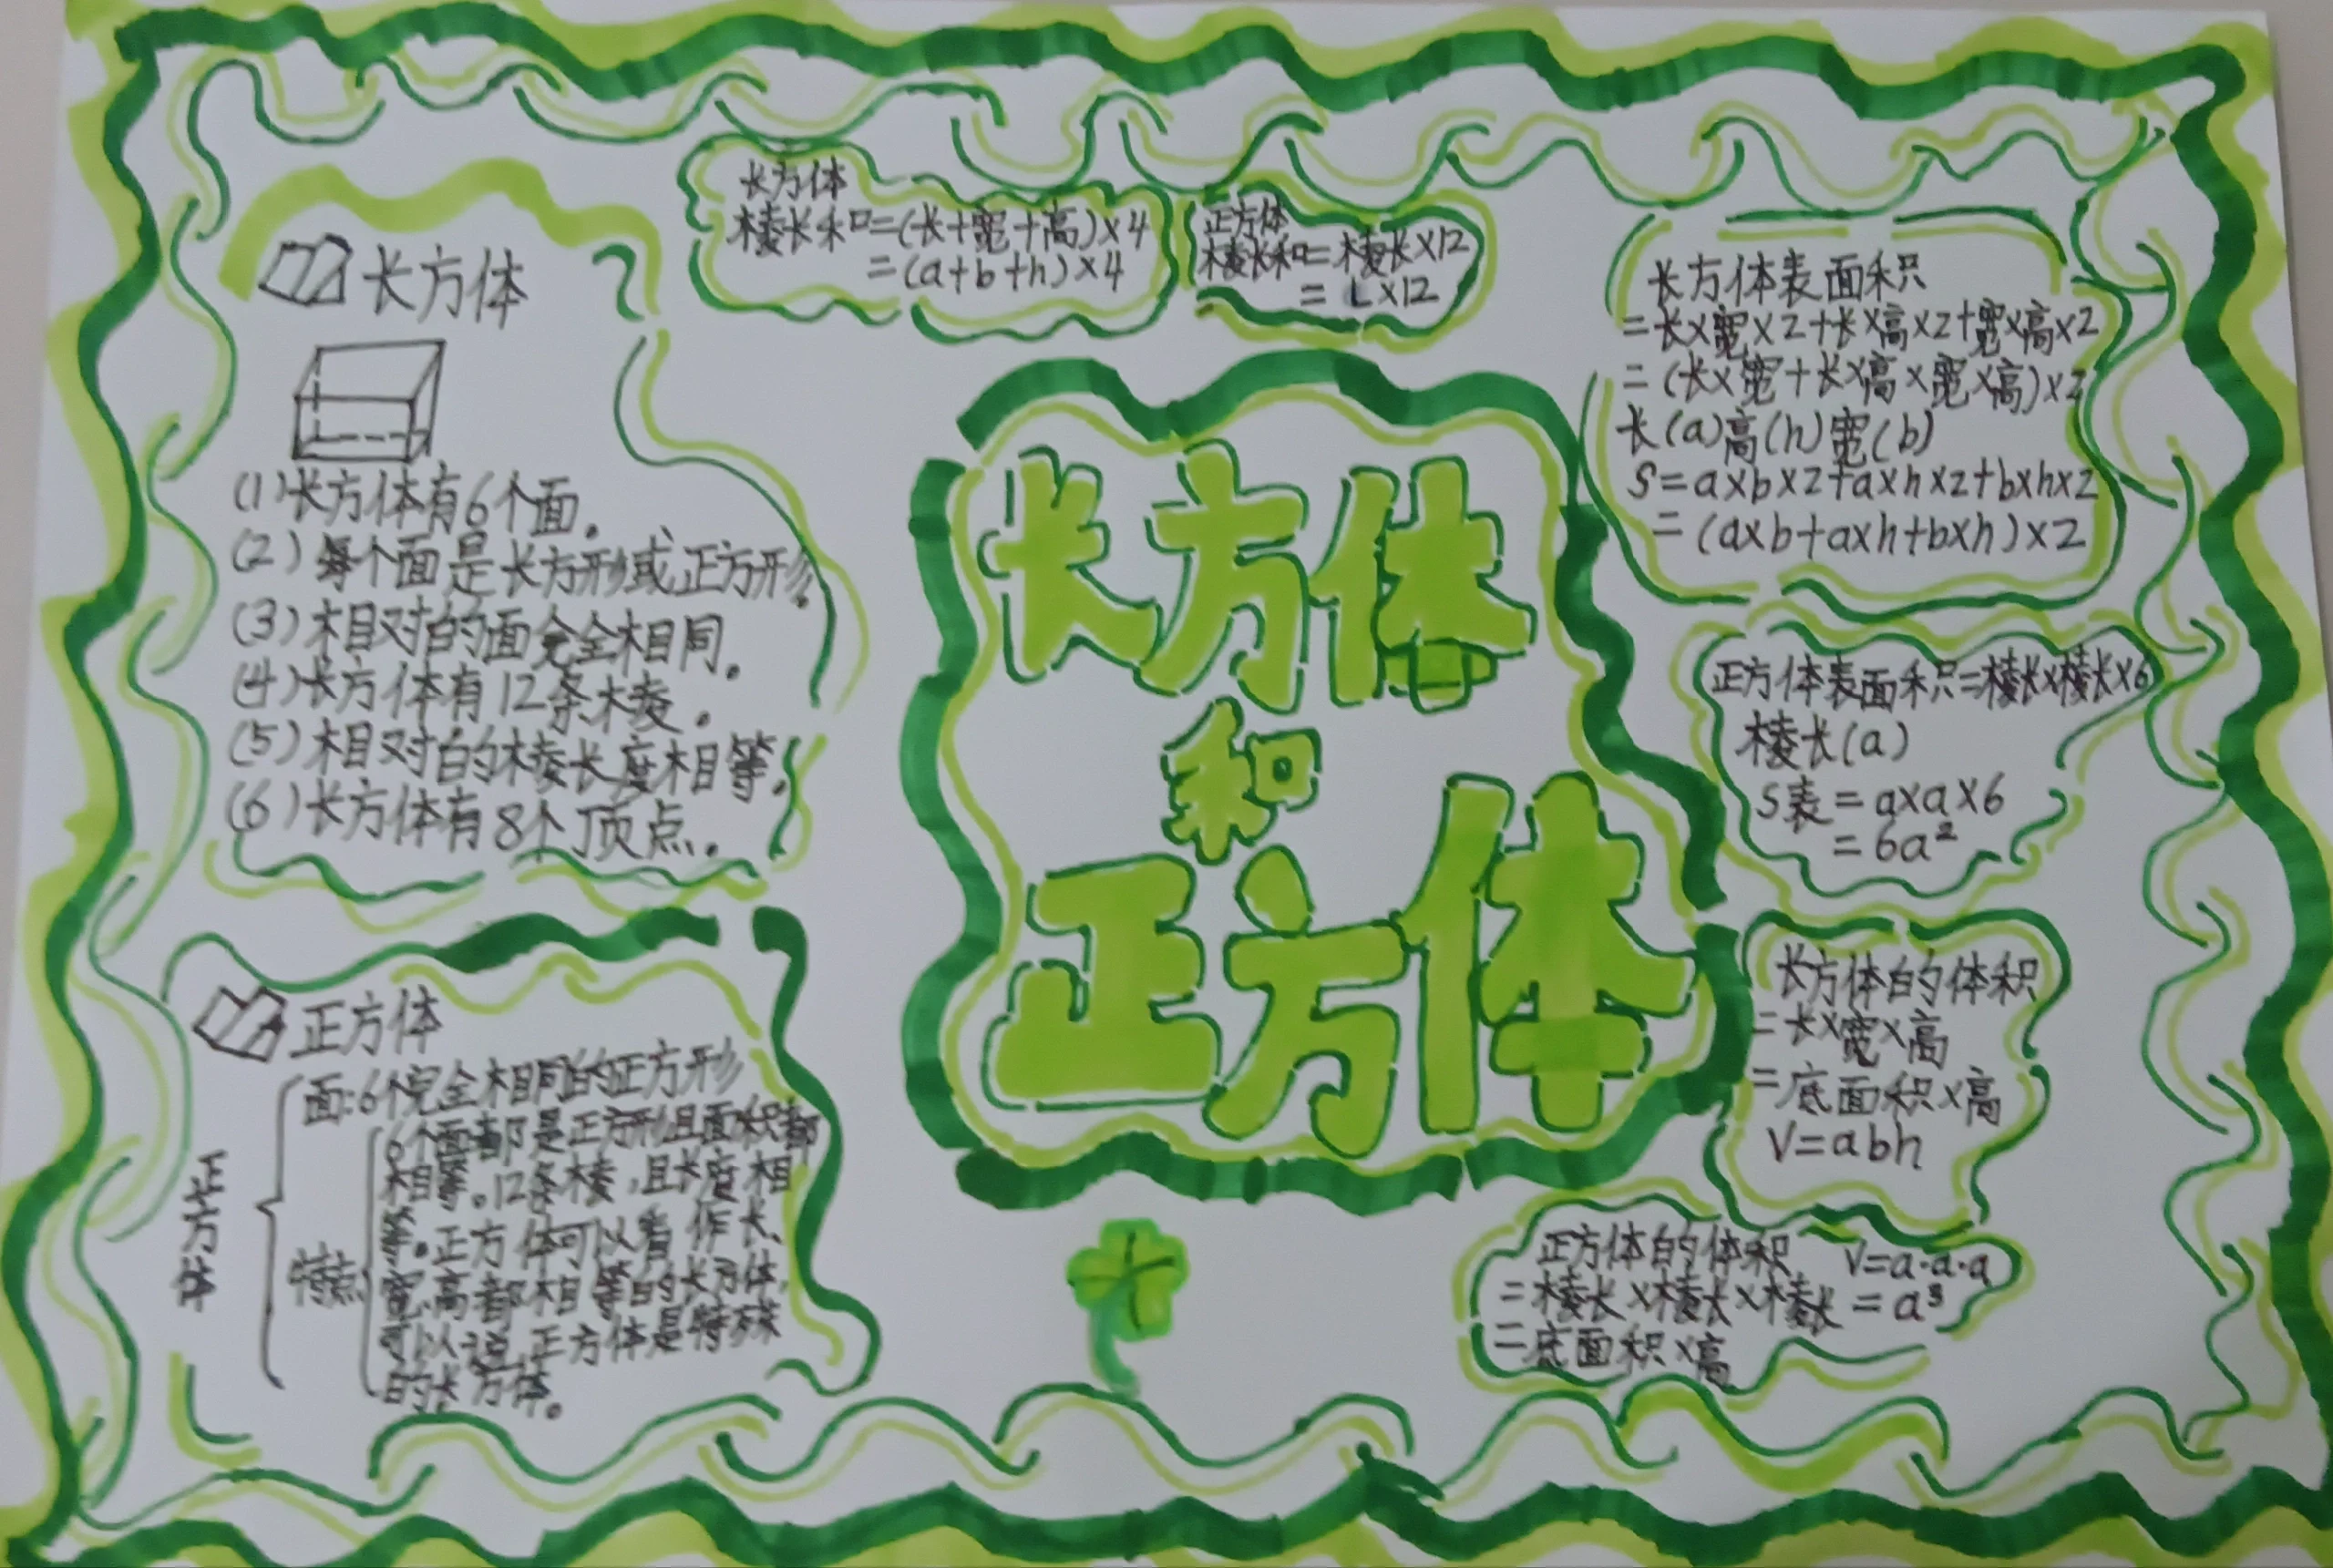 长方体
(1)长方体有6个面。
(2)每个面是长方形或正方形.
(3)相对的面完全相同。
(4)长方体有12条棱。
(5)相对的棱长度相等。
(6)长方体有8个顶点。
正方体
正方体
面:6个完全相同的正方形
特点
6个面都是正方形且面积都
相等。12条棱,且长度相
等。正方体可以看作长、
宽、高都相等的长方体,
可以说,正方体是特殊
的长方体。
长方体
棱长和=(长+宽+高)×4
=(a+b+h)×4
正方体
棱长和=棱长×12
=L×12
长方体
和
正方体
长方体表面积
=长×宽×2+长×高×2+宽×高×2
=(长×宽+长×高×宽×高)×2
长(a)高(h)宽(b)
S=a×b×2+a×h×2+b×h×2
=(a×b+a×h+b×h)×2
正方体表面积=棱长×棱长×6
棱长(a)
S表=a×a×6
=6a²
长方体的体积
=长×宽×高
=底面积×高
V=abh
正方体的体积 V=a·a·a
=棱长×棱长×棱长 =a³
=底面积×高